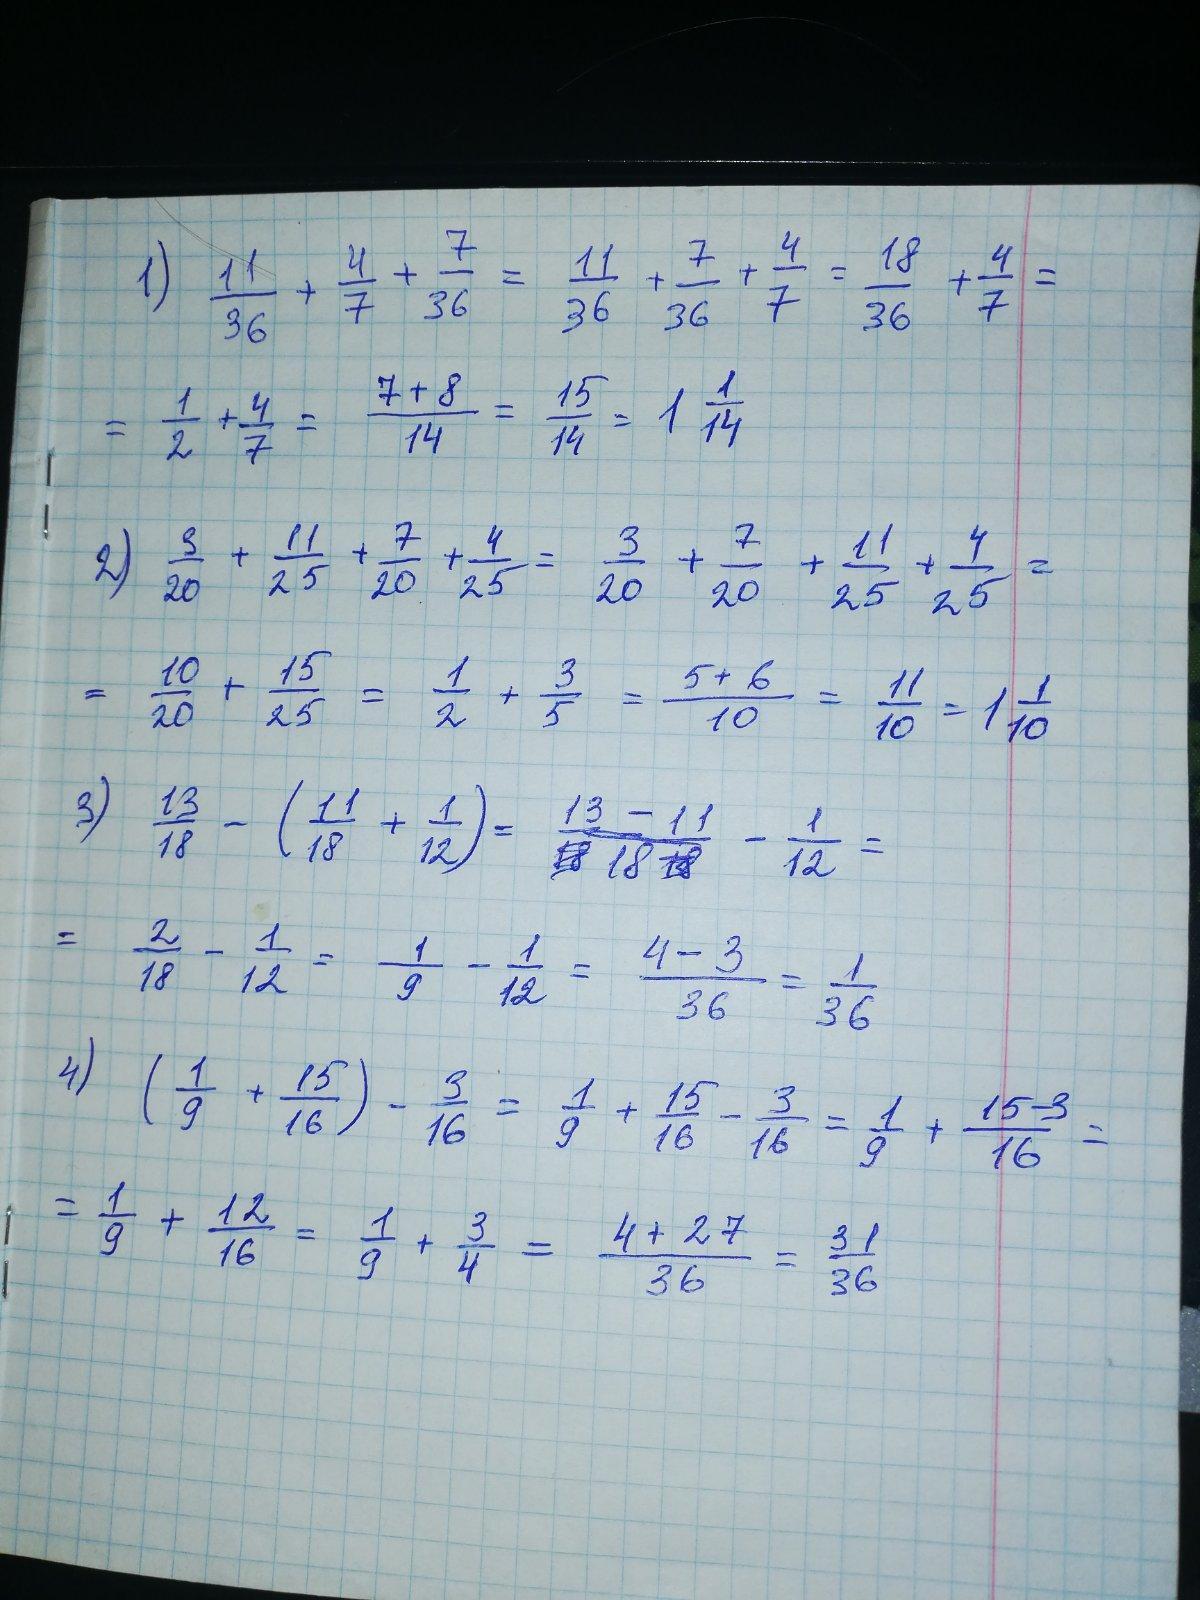 1) 11/36 + 4/7 + 7/36 = 11/36 + 7/36 + 4/7 = 18/36 + 4/7 =
= 1/2 + 4/7 = (7+8)/14 = 15/14 = 1 1/14
2) 3/20 + 11/25 + 7/20 + 4/25 = 3/20 + 7/20 + 11/25 + 4/25 =
= 10/20 + 15/25 = 1/2 + 3/5 = (5+6)/10 = 11/10 = 1 1/10
3) 13/18 - (11/18 + 1/12) = (13-11)/18 - 1/12 =
= 2/18 - 1/12 = 1/9 - 1/12 = (4-3)/36 = 1/36
4) (1/9 + 15/16) - 3/16 = 1/9 + 15/16 - 3/16 = 1/9 + (15-3)/16 =
= 1/9 + 12/16 = 1/9 + 3/4 = (4+27)/36 = 31/36